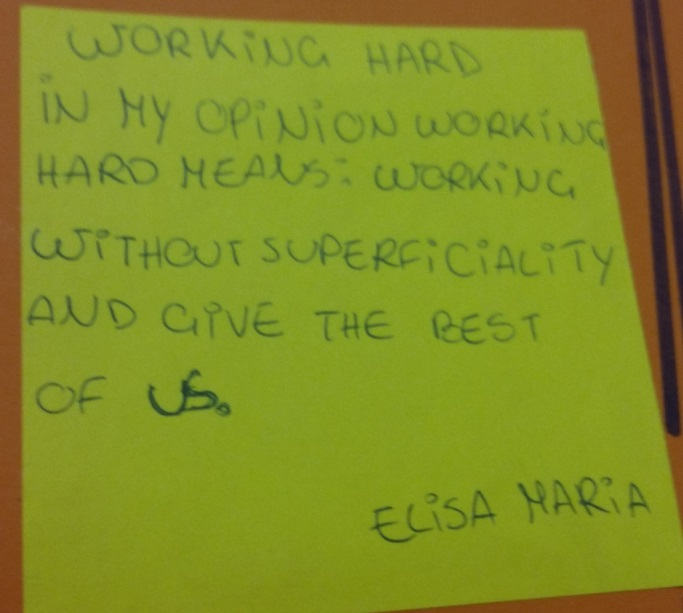 WORKING HARD
IN MY OPINION WORKING
HARD MEANS: WORKING
WITHOUT SUPERFICIALITY
AND GIVE THE BEST
OF US.
ELISA MARIA